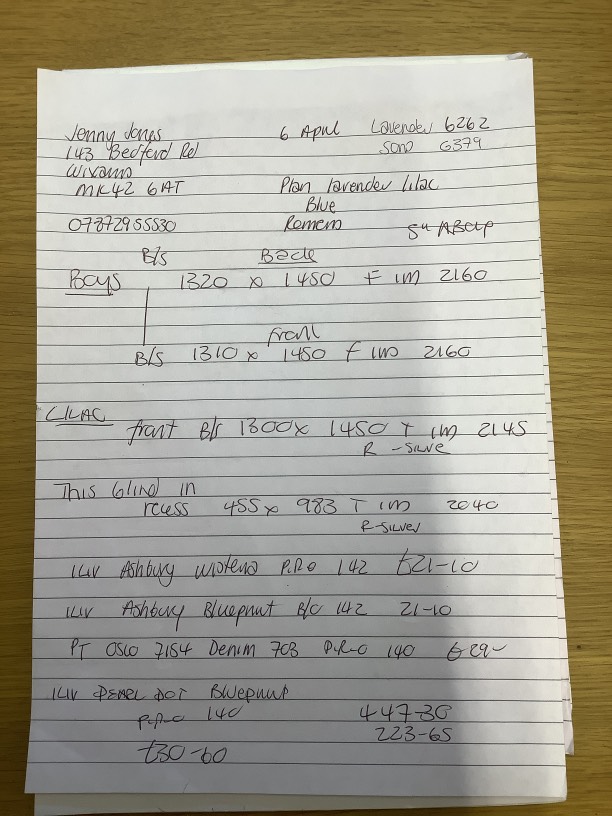 Jenny Jones 6 April Lavender 6262
143 Bedford Rd Sand 6379
Wixams
MK42 6AT Plan lavender lilac
Blue
07872955530 Remem
B/s Back
Boys 1320 x 1450 F 1m 2160
front
B/s 1310 x 1450 F 1m 2160
LILAC
front B/s 1300 x 1450 T 1m 2145
R - Silve
This blind in
recess 455 x 983 T 1m 2040
R-Silver
ILIV Ashbury P.R.O 142 £21-10
ILIV Ashbury Blueprint B/O 142 21-10
PT OSLO 7154 Denim 703 P.R-O 140 £29-
ILIV DOT Blueprint
P.R-O 140 447-30
223-65
£30-60